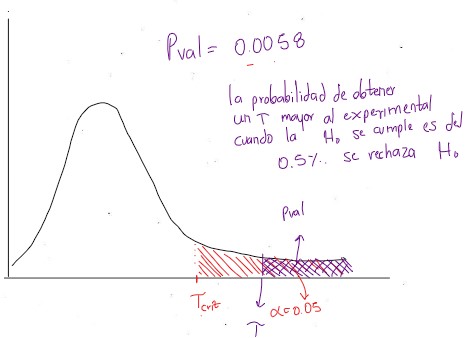 Pval = 0.0058
la probabilidad de obtener
un T mayor al experimental
cuando la H₀ se cumple es del
0.5%. se rechaza H₀
Pval
Tcrit
α=0.05
T